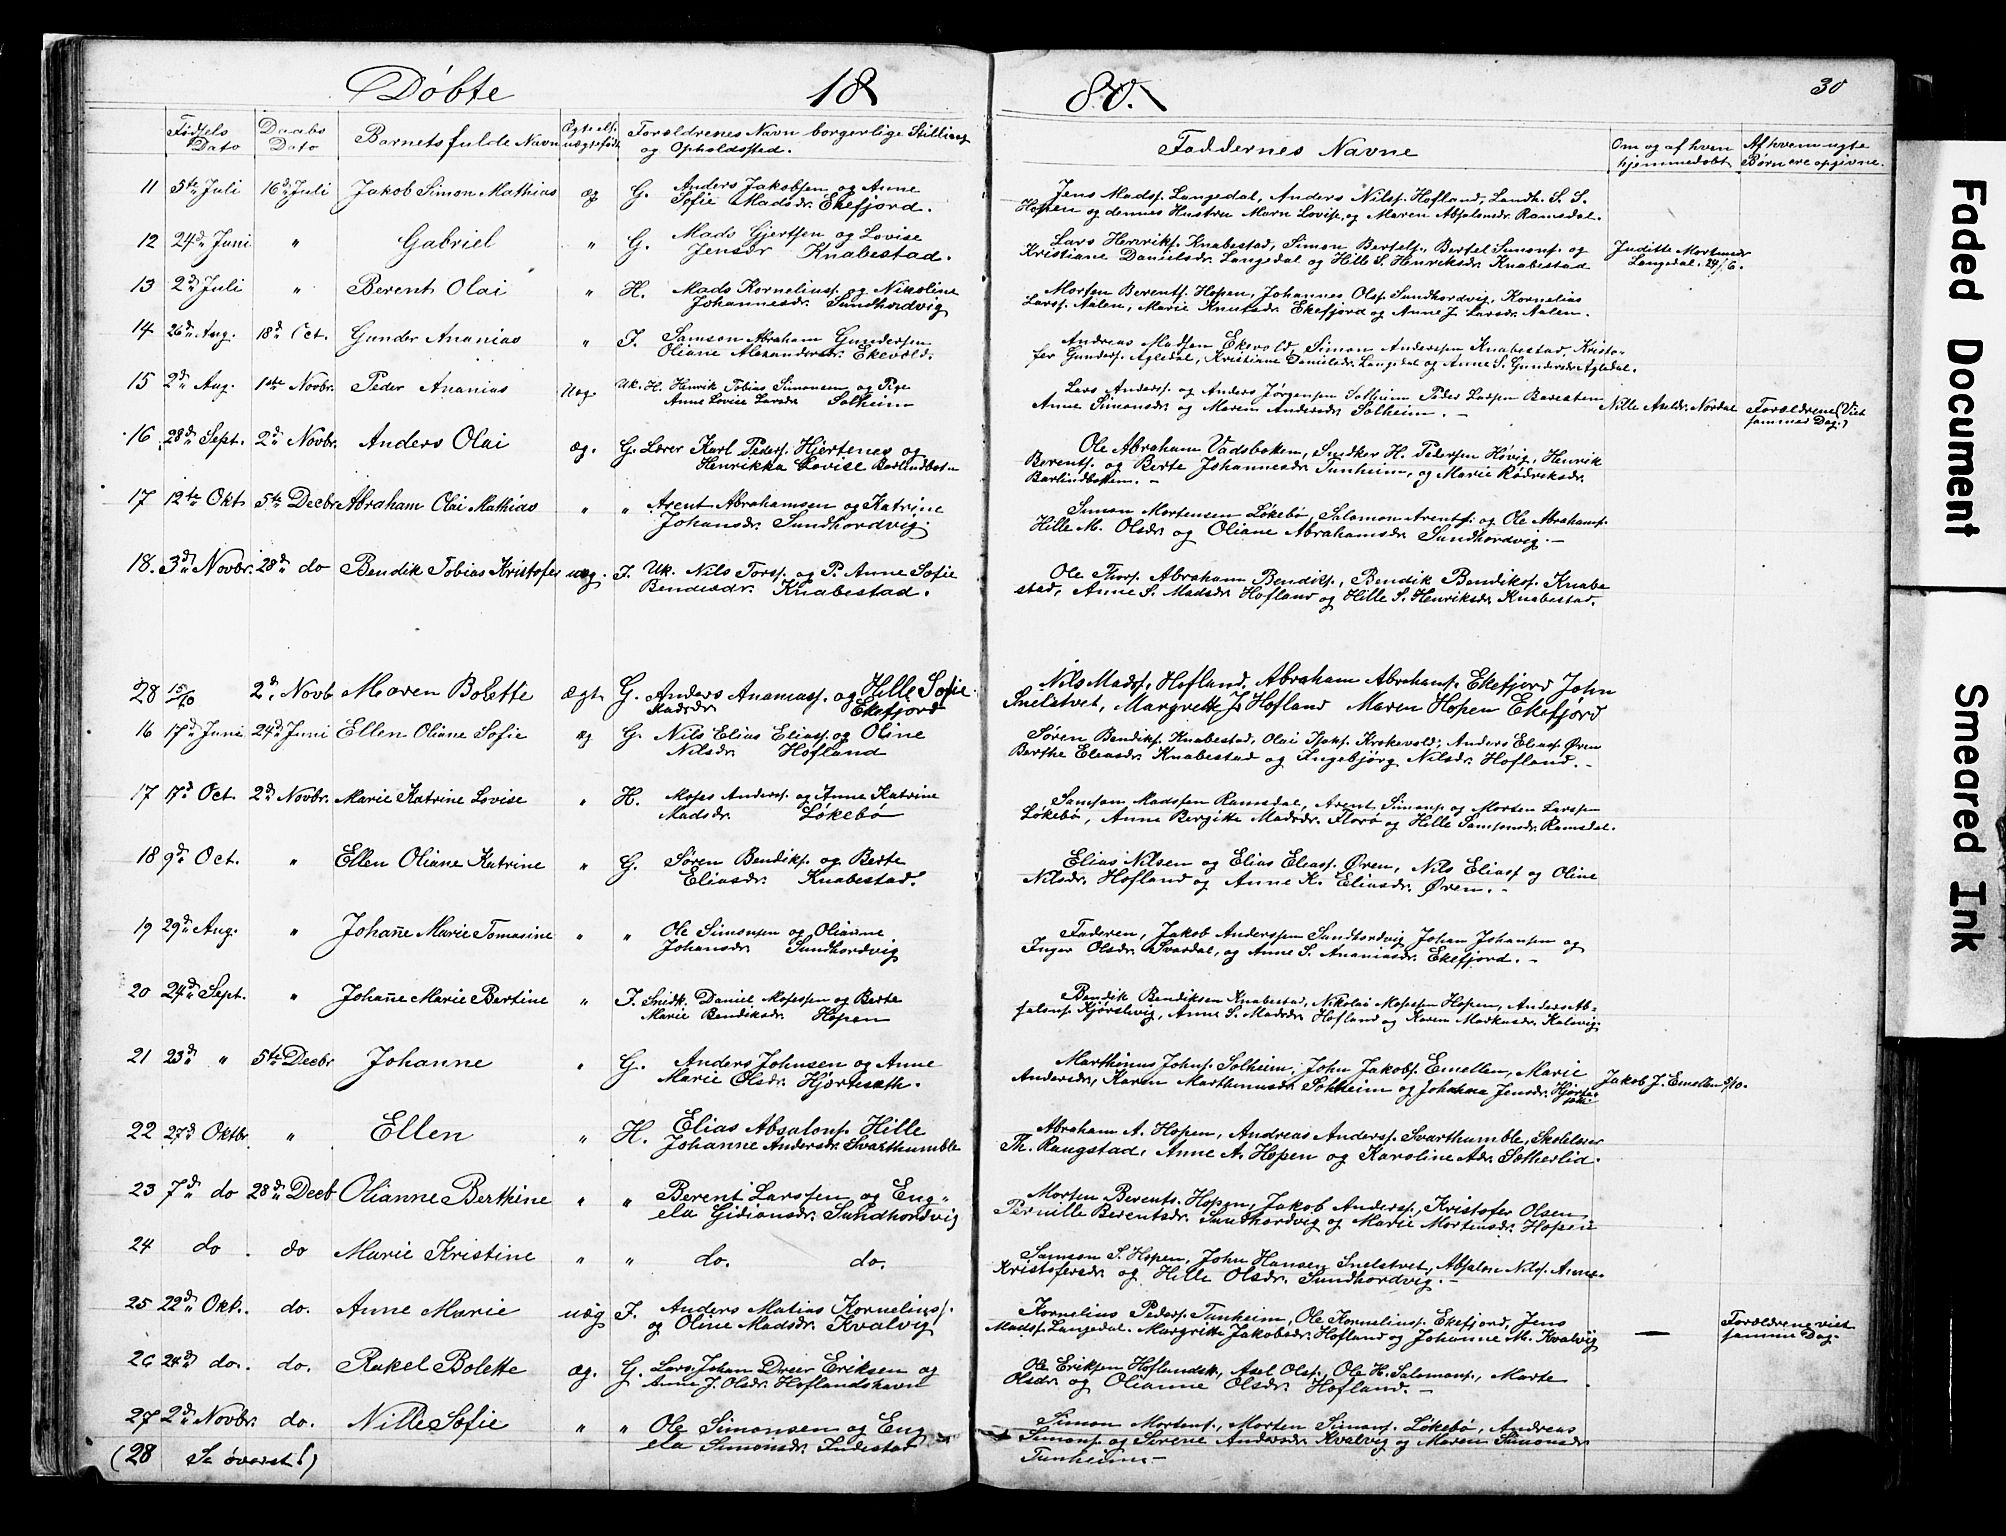 Døbte 1880. 30
Fødsels Dato Daabs Dato Barnets fulde Navn Ægte el. uægtefødt Forældrenes Navn borgerlige Stilling og Opholdsstad. Faddernes Navne Om og af hvem hjemmedøbt Af hvem uægte Børn ere opgivne.
11 5te Juli 16de Juli Jakob Simon Mathias æg G. Anders Jakobsen og Anne Jens Madsf. Langedal, Anders Nilsf. Hofland, Landh. S. S.
Sofie Madsdr. Ekefjord. Hopen og dennes Hustru Marn Lovise, og Maren Absalonsdr. Ramsdal.
12 24de Juni " Gabriel " G. Mads Gjertsen og Lovise Lars Henriksf. Knabestad, Simon Bertelsf., Bertel Simonsf. og Juditte Mortensdr.
Jensdr Knabestad. Kristiane Danielsdr. Langedal og Hille S. Henriksdr. Knabestad Langedal. 24/6.
13 2d Juli " Berent Olai " H. Mads Korneliusf. og Nikoline Morten Berentsf. Hopen, Johannes Olsf. Sundhordvig, Kornelius
Johannesdr. Sundhordvig Larsf. Aalen, Marie Knutsdr. Ekefjord og Anne J. Larsdr. Aalen.
14 26de Aug. 18d Oct. Gunder Ananias " I. Samson Abraham Gundersen Andreas Madsen Ekevold, Simon Anderssen Knabestad, Kristo-
Oliane Alexandersdr. Ekevold. fer Gundersf. Agledal, Kristiane Danielsdr. Langedal og Anne S. Gundersdr. Agledal.
15 2d Aug. 1ste Novbr. Peder Ananias Uæg Uk. H. Henrik Tobias Simonsen og Pige Lars Andersf. og Anders Jørgensen Solheim Peder Larsen Baresten Nille Axeldr. Nordal Forældrene (Viet
Anne Lovise Larsdr. Solheim Anne Simonsdr. og Maren Andersdr. Solheim. — sammen Dag.)
16 28de Sept. 2d Novbr. Anders Olai æg. G. Lærer Karl Pedersf. Hjertenes og Ole Abraham Vadsboken, Snedker H. Pedersen Høvig, Henrik
Henrikka Lovise Barlindbotn Berentsf. og Berte Johannesdr. Tunheim, og Marie Rødriksdr.
Barlindbottem. —
17 12te Okt 5te Decbr Abraham Olai Mathias " " Arent Abrahamsen og Katrine Simon Mortensen Løkebø, Salomon Arentsf. og Ole Abrahamsf.
Johansdr. Sundhordvig. Hille M. Olsdr og Oliane Abrahamsdr. Sundhordvig. —
18. 3d Novbr. 28de do Bendik Tobias Kristofer uæg. I. Uk. Nils Torsf. og P. Anne Sofie Ole Thorsf. Abraham Bendiksf., Bendik Bendiksf. Knabe
Bendiksdr. Knabestad. stad, Anne S. Madsdr. Hofland og Hille S. Henriksdr. Knabestad.
28 15/10 2d. Novb Maren Bolette Ægt G. Anders Ananiasf. og Hille Sofie Nils Madsf. Hofland, Abraham Abrahamsf. Ekefjord John
Madsdr Ekefjord Snelstvet, Margrette J. Hofland Maren Hopen Ekefjord
16 17de Juni 24de Juni Ellen Oliane Sofie æg G. Nils Elias Eliasf. og Oline Søren Bendiksf. Knabestad, Olai Isaksf. Krokevold, Anders Eliasf. Øren
Nilsdr. Hofland Berthe Eliasdr. Knabestad og Ingebjørg Nilsdr. Hofland. —
17 17d Oct. 2d Novbr. Marie Katrine Lovise " H. Moses Andersf. og Anne Katrine Samson Madssen Ramsdal, Arent Simonsf. og Morten Larssen
Madsdr. Løkebø Løkebø, Anne Bergitte Madsdr. Florø og Hille Samsonsdr. Ramsdal.
18 9de Oct. " Ellen Oliane Katrine " G. Søren Bendiksf. og Berte Elias Nilsen og Elias Eliasf. Øren, Nils Eliasf og Oline
Eliasdr. Knabestad. Nilsdr. Hofland og Anne K. Eliasdr. Øren. —
19 29de Aug. " Johañe Marie Tomasine " " Ole Simonsen og Olianne Faderen, Jakob Anderssen Sundhordvig Johan Johansen og
Johansdr. Sundhordvig Inger Olsdr. Svardal, og Anne S. Ananiasdr. Ekefjord. —
20 24de Sept. " Johañe Marie Bertine " I. Snidk. Daniel Mosessen og Berte Bendik Bendiksen Knabestad, Nikolai Mosessen Hopen, Anders Ab-
Marie Bendiksdr. Hopen salonsf. Kjørslevig, Anne S. Madsdr. Hofland og Karen Markusdr. Kalvig.
21 23d " 5te Decbr Johanne " G. Anders Johnsen og Anne Marthinus Johnsf. Solheim, John Jakobsf. Emellen, Marie Jakob J. Emellen 5/10.
Marie Olsdr. Hjortesæth. Andersdr, Karen Marthinusdr Solheim og Johanna Jensdr. Hjorte-
sæt.
22 27d Oktbr. " Ellen " H. Elias Absalonsf. Hille Abraham A. Hopen, Andreas Andersf. Svarthumble, Skolelærer
Johanne Andersdr Svarthumble Th. Raugstad, Anne A. Hopen og Karoline Adr. Sætherlid.
23 7de do 28de Decb Olianne Berthine " " Berent Larssen og Eng- Morten Berents. Hopen, Jakob Andersf., Kristofer Olsen
ela Gidionsdr. Sundhordvig Pernille Berentsdr. Sundhordvig og Marie Mortensdr. Hopen
24 do. do Marie Kristine " " do. do. Samson S. Hopen, John Hansen Snelstvet, Absalon Nilsf. Anne
Kristofersdr og Hille Olsdr. Sundhordvig. —
25 22de Okt. do. Anne Marie uæg I. Anders Matias Korneliusf. Kornelius Pedersf. Tunheim, Ole Korneliusf. Ekefjord, Jens — Forældrene viet
og Oline Madsdr. Kvalvig Madsf. Langedal. Margritte Jakobsdr. Hofland og Johanne M. Kvalvig samme Dag.
26 24de do. do. Rakel Bolette æg. G. Lars Johan Dreer Eriksen og Ole Eriksen Hoflandseth., Axel Olsf., Ole H. Salomonsf., Marte
Anne J. Olsdr. Hoflandshavn Olsdr og Olianne Olsdr. Hofland. —
27 2d Novbr. do. Nille Sofie " " Ole Simonsen og Eng Simon Mortensf., Morten Simonsf. Løkebø, Andreas
ela Simonsdr. Indestad Simonsf og Sirene Andersdr Kvalvig og Maren Simonsdr
(28 Se øverst!) Tunheim. —
Faded Document
Smeared Ink